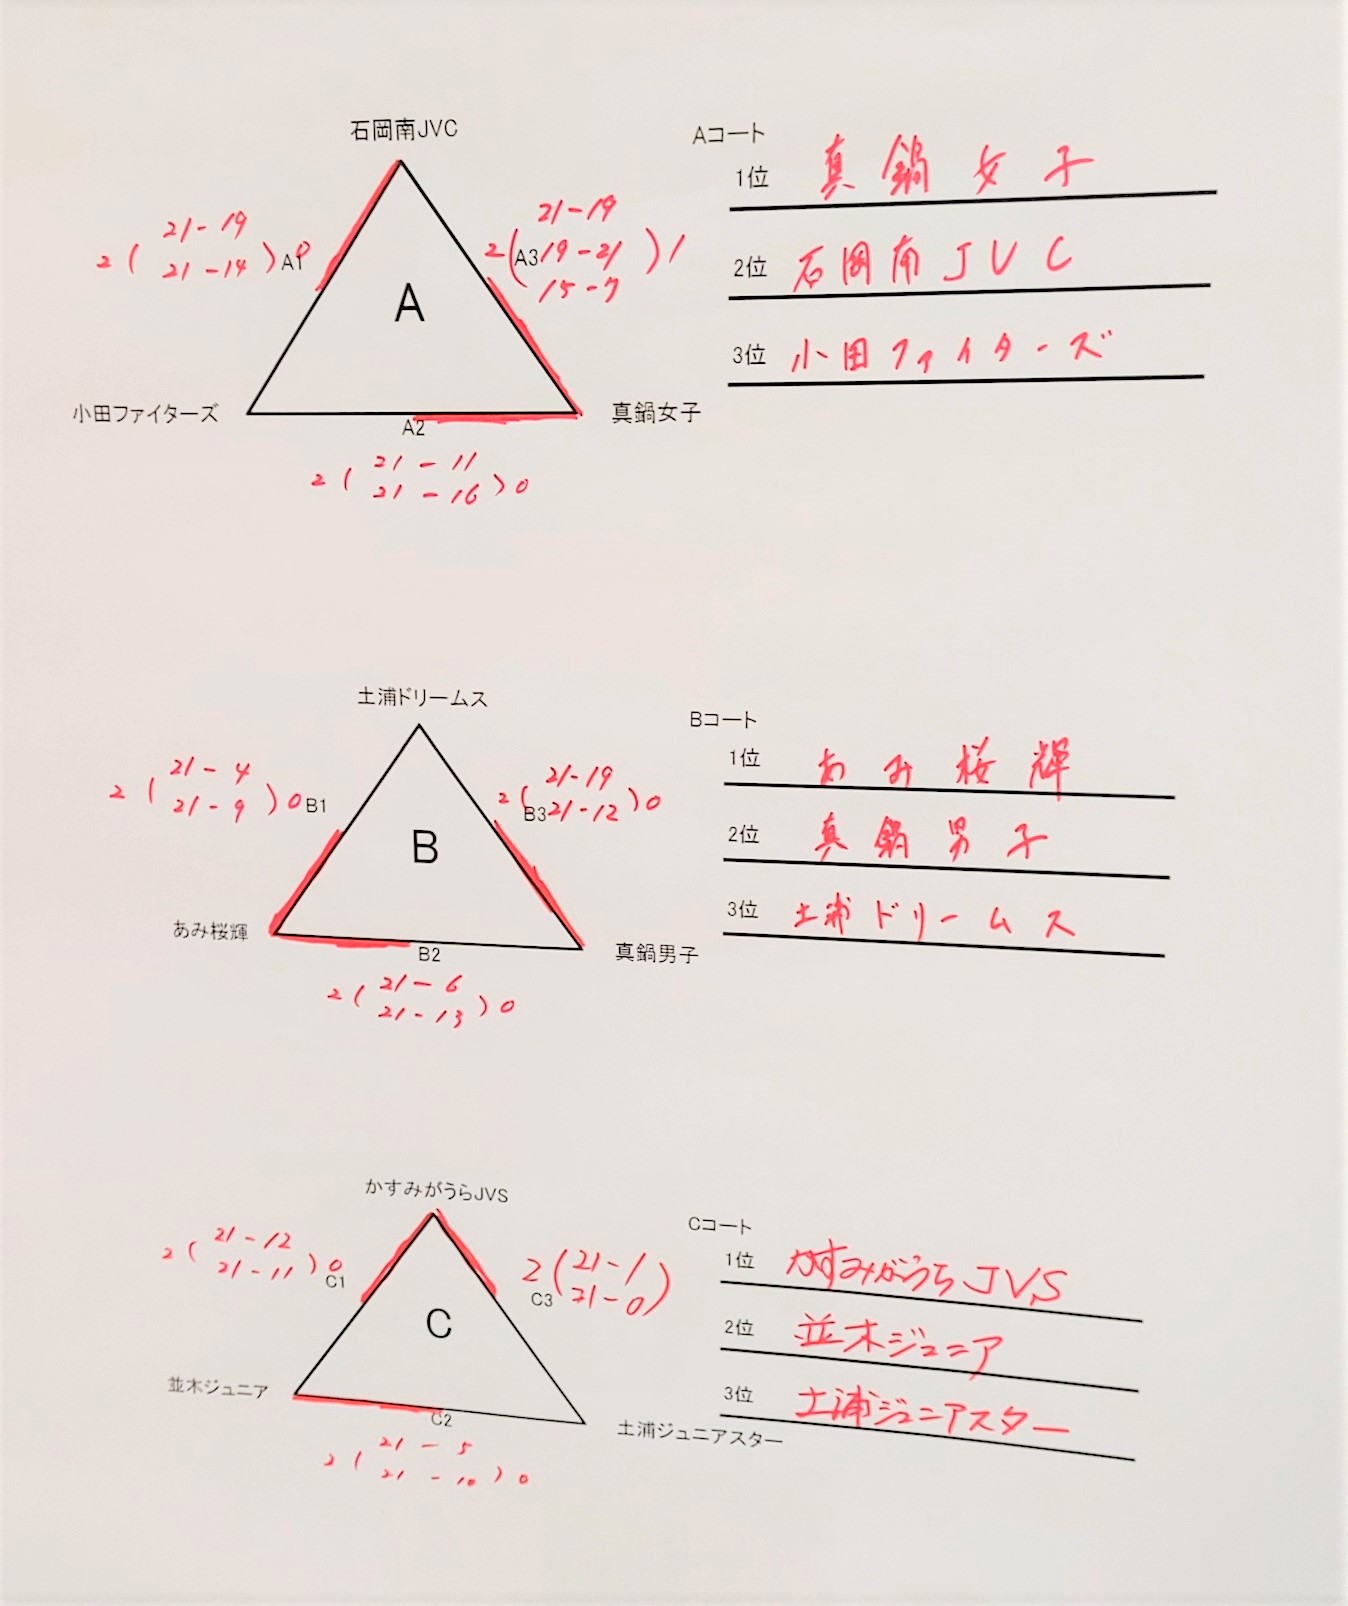 石岡南JVC
Aコート
1位 真鍋女子
21-19
21-14
2( )0
A1
21-19
19-21
15-7
2( )1
A3
A
2位 石岡南JVC
3位 小田ファイターズ
小田ファイターズ
真鍋女子
A2
21-11
21-16
2( )0
土浦ドリームス
Bコート
1位 あみ桜輝
21-4
21-9
2( )0
B1
21-19
21-12
2( )0
B3
B
2位 真鍋男子
3位 土浦ドリームス
あみ桜輝
真鍋男子
B2
21-6
21-13
2( )0
かすみがうらJVS
Cコート
1位 かすみがうらJVS
21-12
21-11
2( )0
C1
21-1
21-0
2( )
C3
C
2位 並木ジュニア
3位 土浦ジュニアスター
並木ジュニア
土浦ジュニアスター
C2
21-5
21-10
2( )0